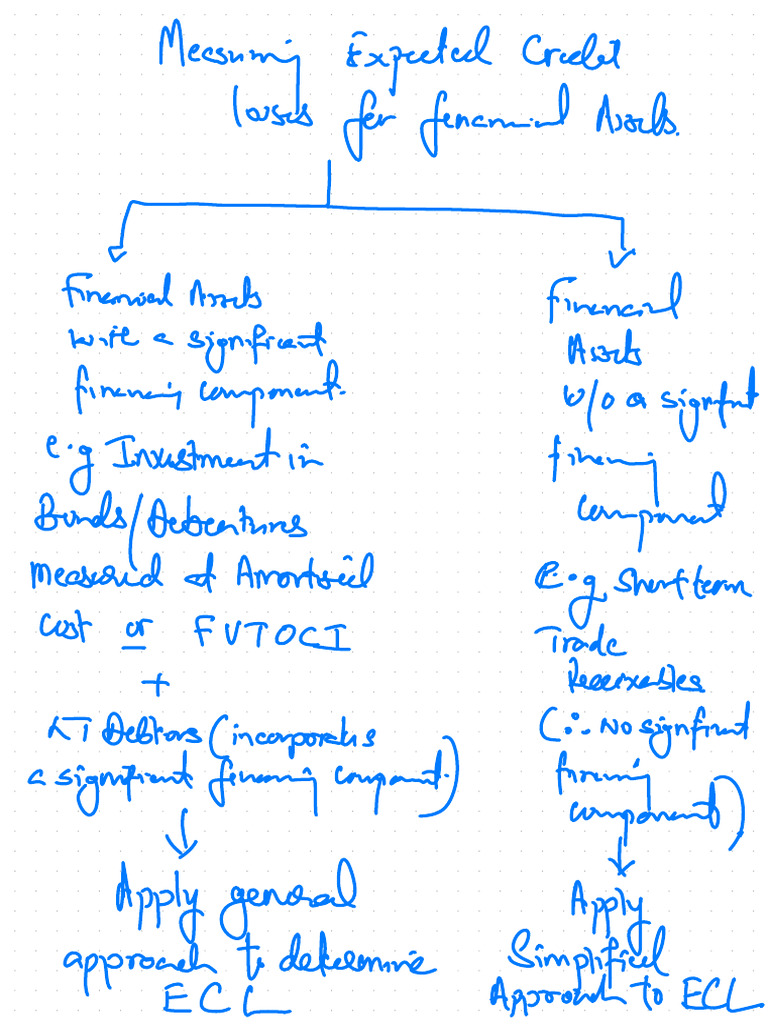 Measuring Expected Credit
losses for financial Assets.
Financial Assets
with a significant
financing component.
e.g Investment in
Bonds/Debentures
measured at Amortised
cost or FVTOCI
+
LT Debtors (incorporates
a significant financing component.)
Apply general
approach to determine
ECL
Financial
Assets
w/o a signfnt
financing
component
E.g, Short term
Trade
Receivables
(∵ No signficant
financing
component)
Apply
Simplified
Approach to ECL